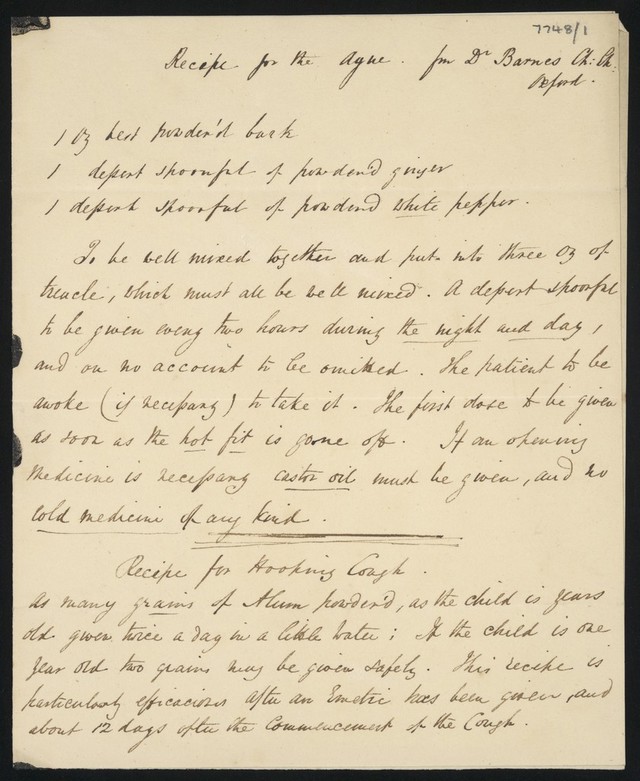 7748/1
Recipe for the Ague. fm Dr Barnes Ch: Ch:
Oxford.
1 Oz best powder'd bark
1 dessert spoonful of powder'd ginger
1 dessert spoonful of powder'd white pepper.
To be well mixed together and put into three Oz of
treacle, which must all be well mixed. A dessert spoonful
to be given every two hours during the night and day,
and on no account to be omitted. The patient to be
awoke (if necessary) to take it. The first dose to be given
as soon as the hot fit is gone off. If an opening
medicine is necessary castor oil must be given, and no
cold medicine of any kind.
Recipe for Hooping Cough.
As many grains of Alum powder'd, as the child is years
old given twice a day in a little water; If the child is one
year old two grains may be given safely. This recipe is
particularly efficacious after an Emetic has been given, and
about 12 days after the Commencement of the Cough.